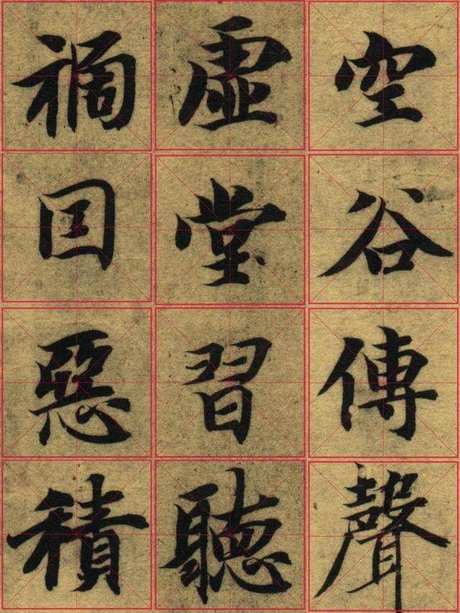 空谷傳聲
虛堂習聽
禍因惡積